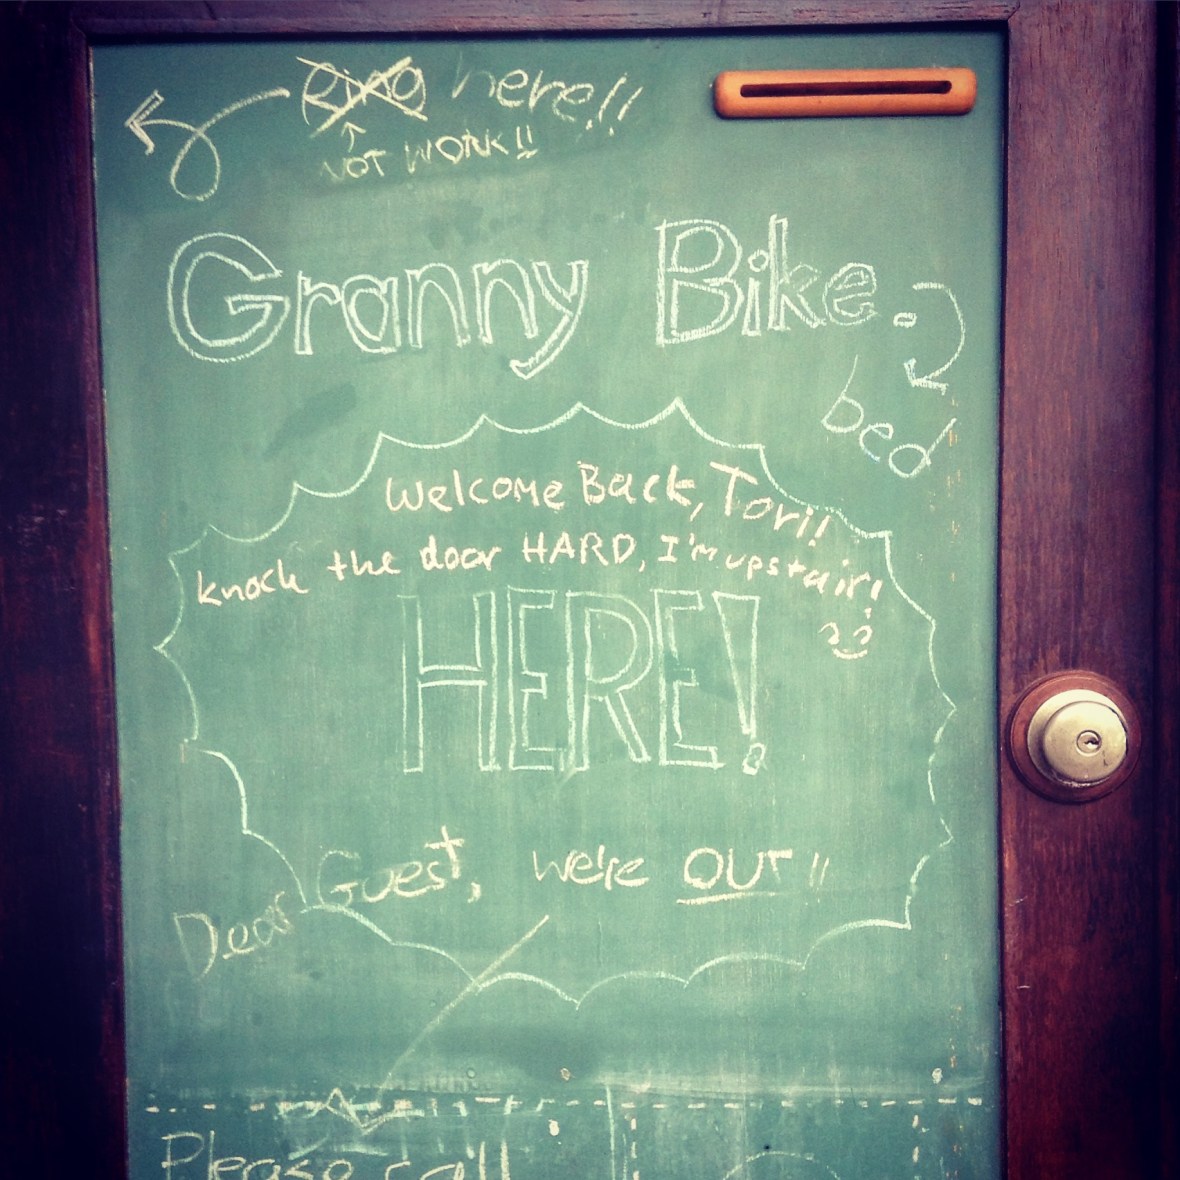 Ring here!!
NOT WORK!!
Granny Bike.
bed
Welcome Back, Tori!
knock the door HARD, I'm upstair!
HERE!
Dear Guest, we're OUT!!
Please call